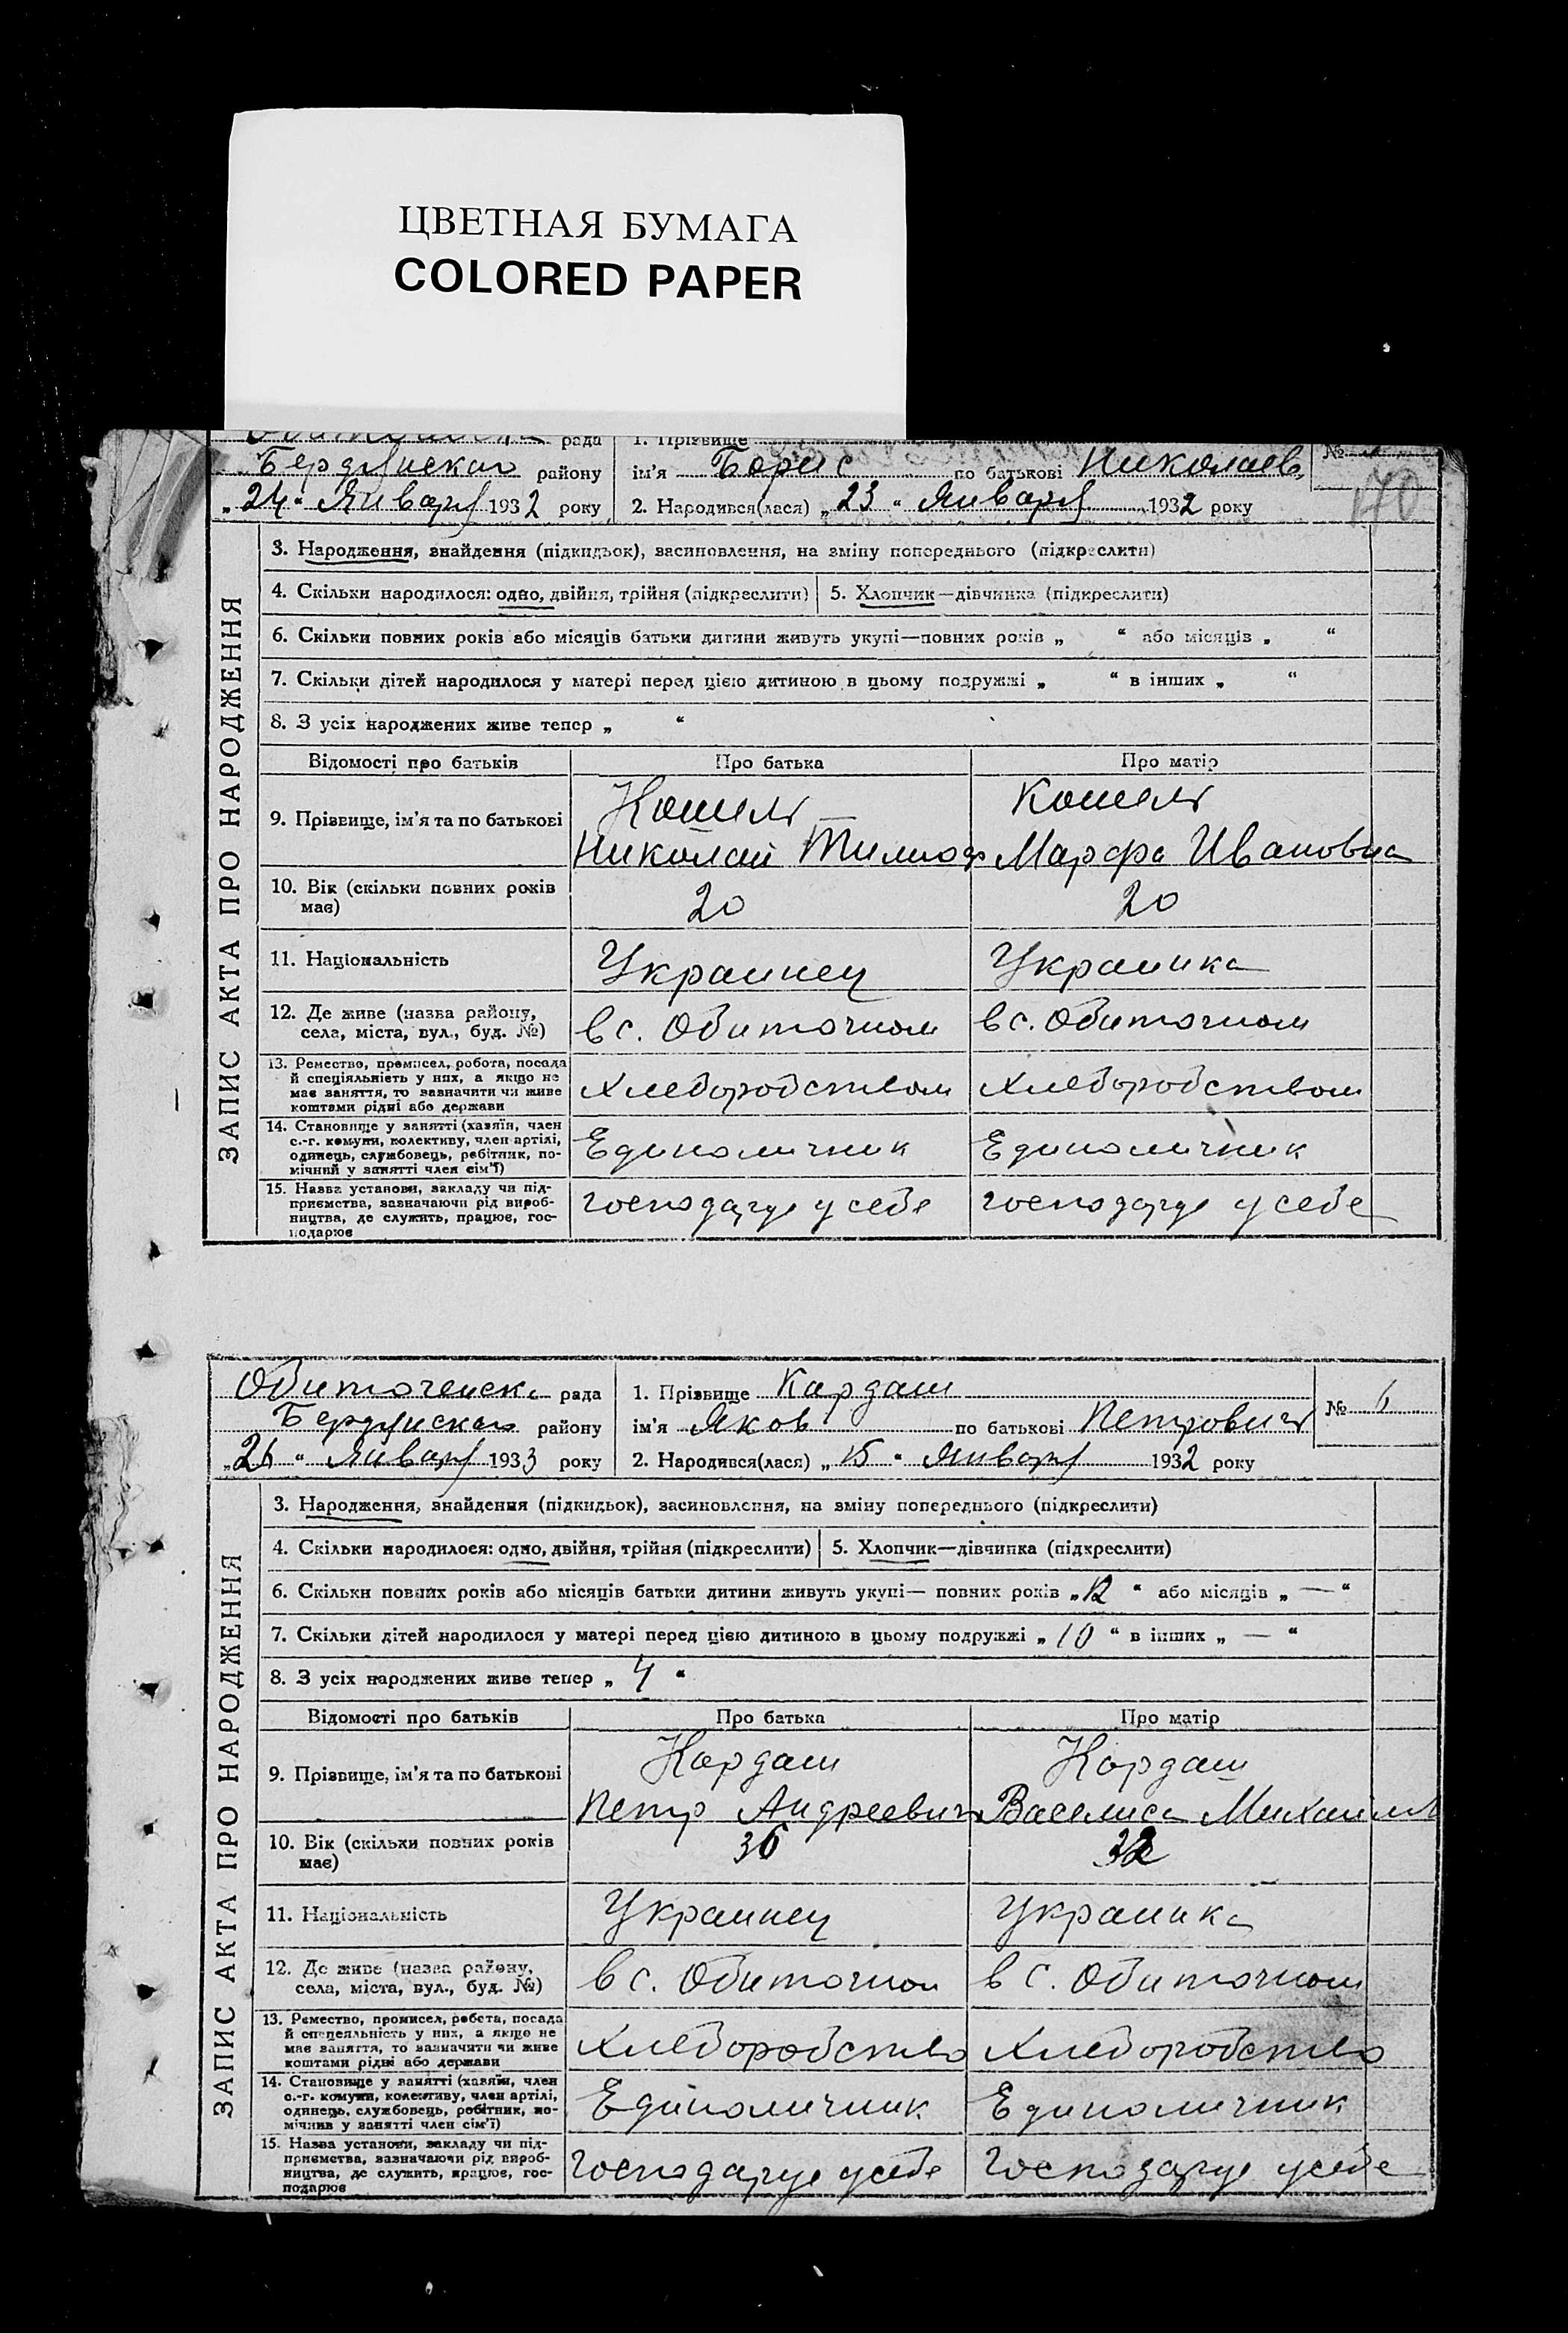 ЦВЕТНАЯ БУМАГА
COLORED PAPER
рада 1. Прізвище
Бердянского району ім'я Борис по батькові Николаев. №
„24“ Января 1932 року 2. Народився(лася) „23“ Января 1932 року
170
ЗАПИС АКТА ПРО НАРОДЖЕННЯ
3. Народження, знайдення (підкидьок), засиновлення, на зміну попереднього (підкреслити)
4. Скільки народилося: одно, двійня, трійня (підкреслити) 5. Хлопчик—дівчинка (підкреслити)
6. Скільки повних років або місяців батьки дитини живуть укупі—повних років „ “ або місяців „ “
7. Скільки дітей народилося у матері перед цією дитиною в цьому подружжі „ “ в інших „ “
8. З усіх народжених живе тепер „ “
Відомості про батьків Про батька Про матір
9. Прізвище, ім'я та по батькові Кошель Кошель
Николай Тимоф Марфа Ивановна
10. Вік (скільки повних років має) 20 20
11. Національність Украинец Украинка
12. Де живе (назва району, села, міста, вул., буд. №) в с. Обиточном в с. Обиточном
13. Ремество, промисел, робота, посада
й спеціяльність у них, а якщо не
має заняття, то зазначити чи живе
коштами рідні або держави
Хлебородством Хлебородством
14. Становище у занятті (хазяїн, член
с.-г. комуни, колективу, член артілі,
одинець, службовець, робітник, по-
мічний у занятті член сім'ї)
Единоличник Единоличник
15. Назва установи, закладу чи під-
приємства, зазначаючи рід вироб-
ництва, де служить, працює, гос-
подарює
господарує у себе господарує у себе
Обиточенска рада 1. Прізвище Кардаш № 6
Бердянского району ім'я Яков по батькові Петрович
„26“ Января 1933 року 2. Народився(лася) „15“ Января 1932 року
ЗАПИС АКТА ПРО НАРОДЖЕННЯ
3. Народження, знайдення (підкидьок), засиновлення, на зміну попереднього (підкреслити)
4. Скільки народилося: одно, двійня, трійня (підкреслити) 5. Хлопчик—дівчинка (підкреслити)
6. Скільки повних років або місяців батьки дитини живуть укупі— повних років „12“ або місяців „—“
7. Скільки дітей народилося у матері перед цією дитиною в цьому подружжі „10“ в інших „—“
8. З усіх народжених живе тепер „4“
Відомості про батьків Про батька Про матір
9. Прізвище, ім'я та по батькові Кардаш Кардаш
Петр Андреевич Василиса Михаил
10. Вік (скільки повних років має) 36 32
11. Національність Украинец Украинка
12. Де живе (назва району, села, міста, вул., буд. №) в с. Обиточном в с. Обиточном
13. Ремество, промисел, робота, посада
й спецеяльність у них, а якщо не
має заняття, то зазначити чи живе
коштами рідні або держави
Хлебородство Хлебородство
14. Становище у занятті (хазяїн, член
с.-г. комуни, колективу, член артілі,
одинець, службовець, робітник, по-
мічнив у занятті член сім'ї)
Единоличник Единоличник
15. Назва установи, закладу чи під-
приємства, зазначаючи рід вироб-
ництва, де служить, працює, гос-
подарює
Господарує у себе Господарує у себе